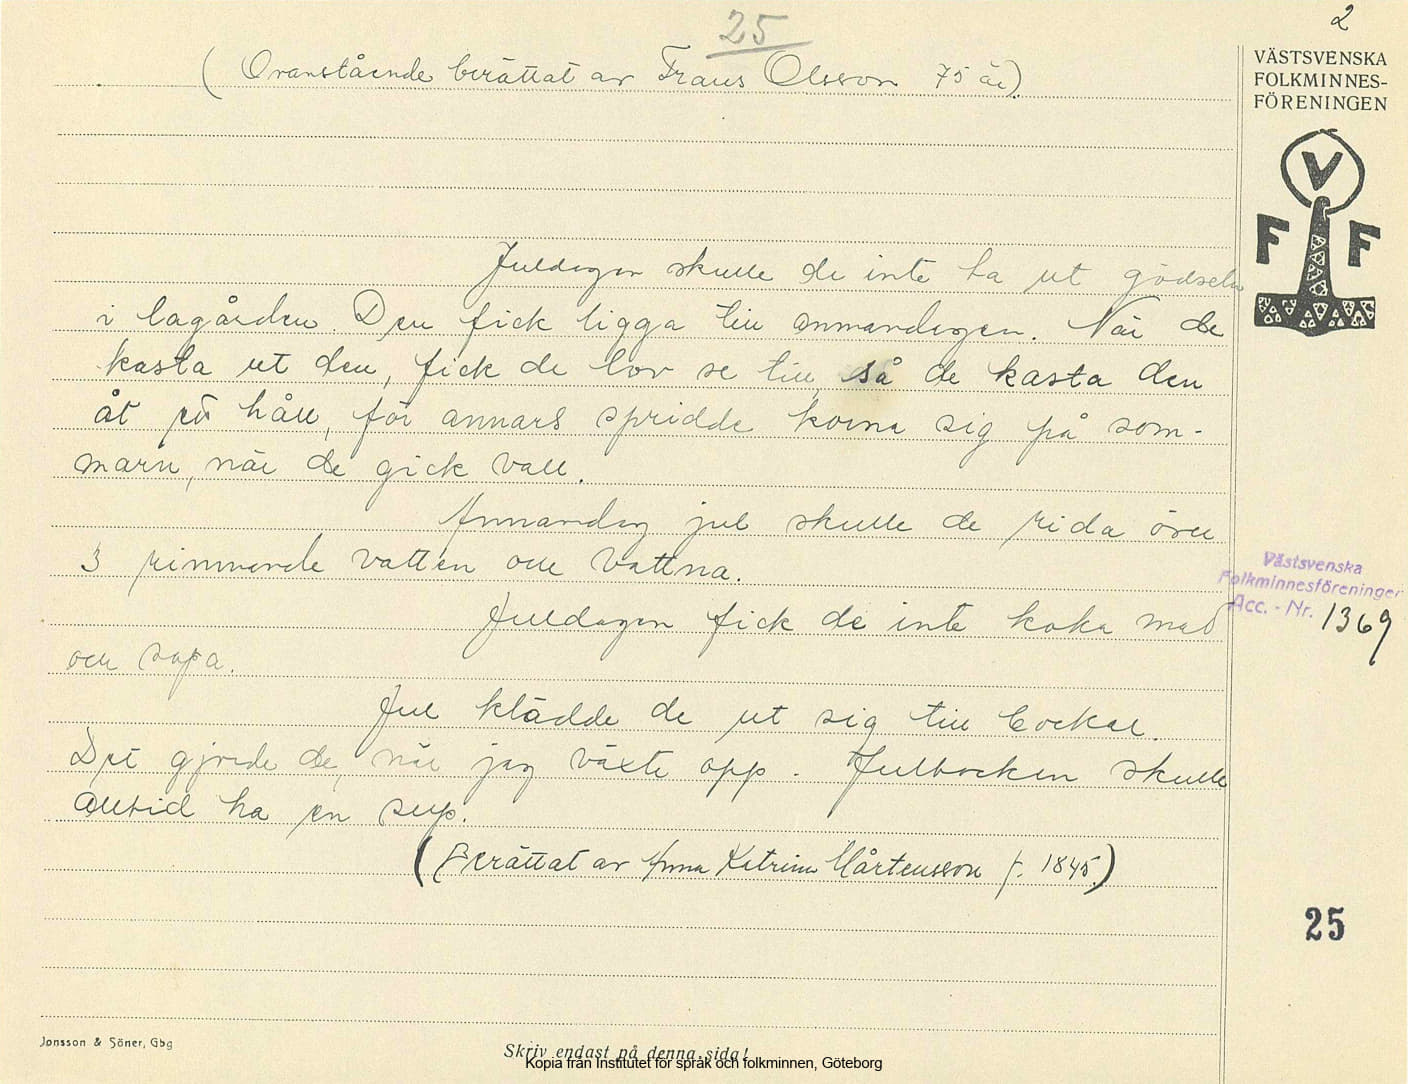 25
2
(Ovanstående berättat av Frans Olsson 75 år).
VÄSTSVENSKA
FOLKMINNES-
FÖRENINGEN
V
F F
Juldagen skulle de inte ta ut gödseln
i lagården. Den fick ligga till annandagen. När de
kasta ut den, fick de lov se till, så de kasta den
åt ett håll, för annars spridde korna sig på som-
marn, när de gick vall.
Annandag jul skulle de rida över
3 rinnande vatten och vattna.
Juldagen fick de inte koka mad
och sopa.
Jul klädde de ut sig till bockar.
Det gjorde de, när jag växte opp. Julbocken skulle
alltid ha en sup.
(Berättat av Anna Katrina Mårtensson f. 1845.)
Västsvenska
Folkminnesföreningen
Acc. - Nr. 1369
25
Jonsson & Söner, Gbg
Skriv endast på denna sida!
Kopia från Institutet för språk och folkminnen, Göteborg